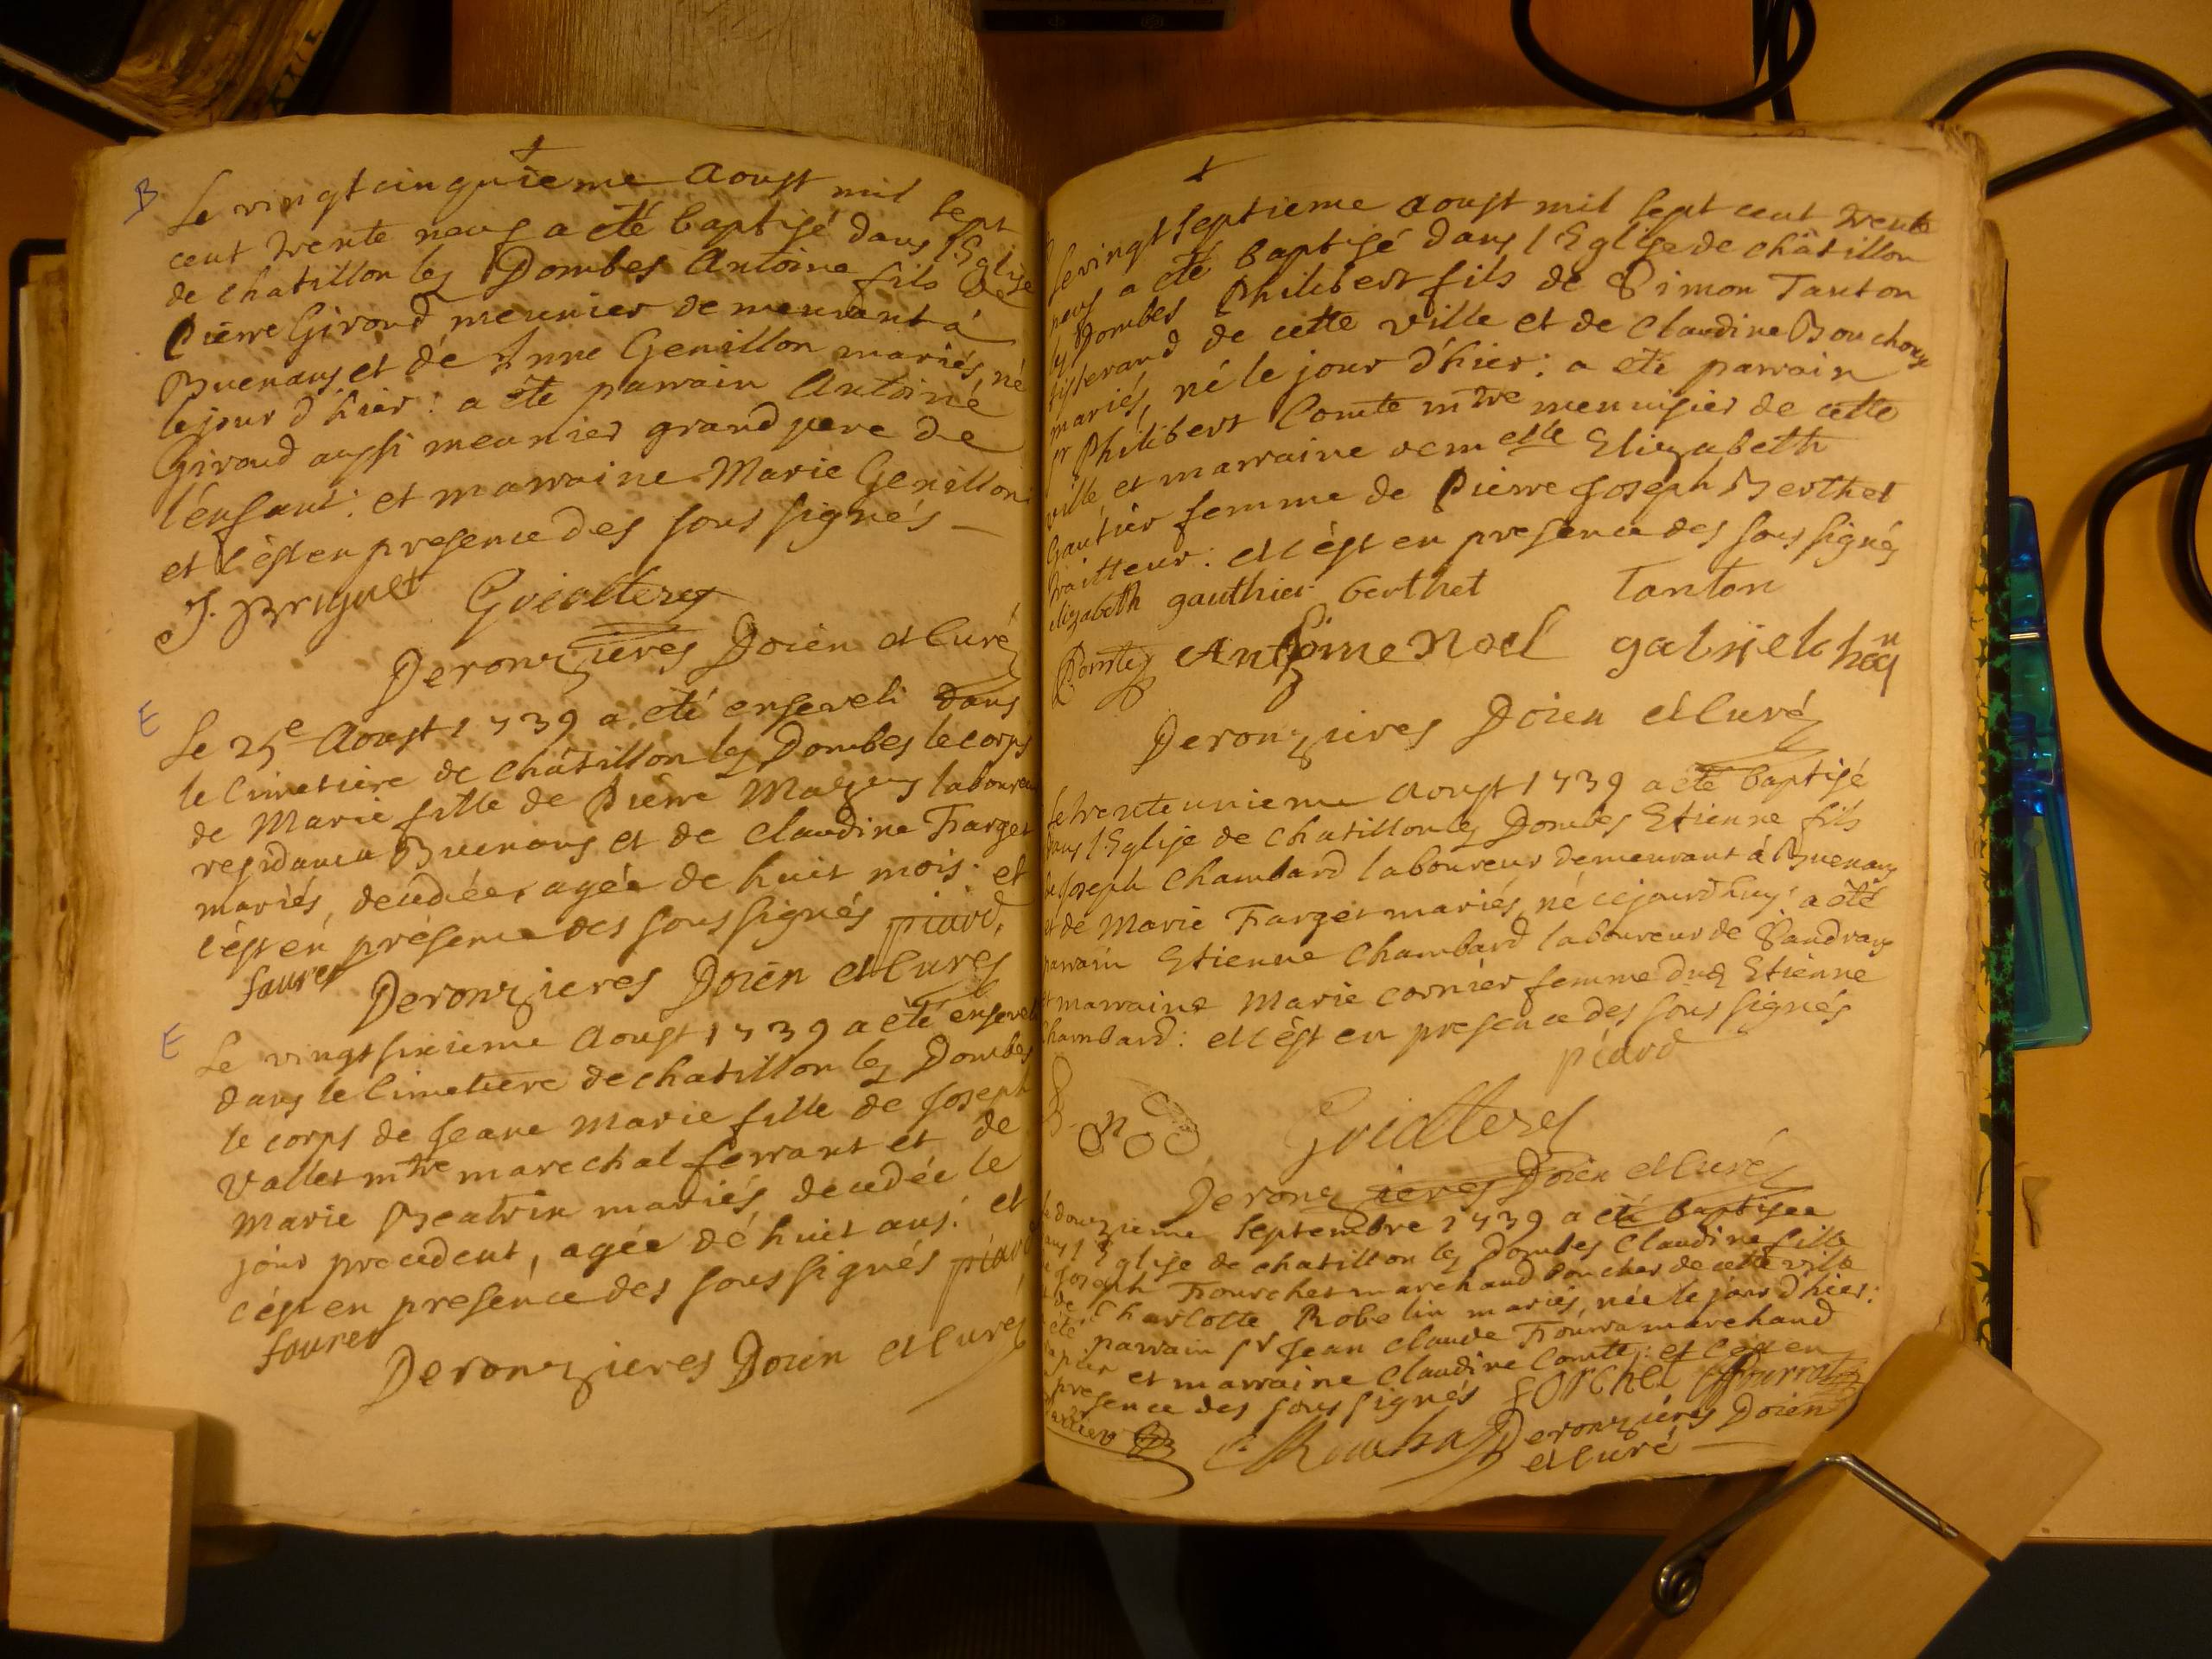 B
Le vingt cinquieme Aoust mil sept
cent trente neuf a eté baptisé dans l'Eglise
de chatillon les Dombes Antoine fils de
Pierre Giroud meunier demeurant à
Buenans et de Anne Genillon mariés, né
le jour d'hier: a ete parrain Antoine
Giroud aussi meunier grand pere de
l'enfant: et marraine Marie Genillon:
et c'est en presence des sous signés
J. Briguet
Deronzieres Doien et Curé
E
Le 25e Aoust 1739 a eté enseveli dans
le Cimetiere de châtillon les Dombes le corps
de Marie fille de Pierre laboureur
residant a Buenans et de Claudine Farget
mariés, decedée, agée de huit mois: et
c'est en présence des sous signés piard,
faurer
Deronzieres Doien et Curé
E
Le vingt sixieme Aoust 1739 a eté enseveli
dans le Cimetiere de chatillon les Dombes
le corps de Jeane Marie fille de Joseph
Vallet mtre marechal ferrant et de
Marie Beatrix mariés, decedée le
jour precedent, agée de huit ans: et
c'est en presence des sous signés piard
faurer
Deronzieres Doien et Curé
Le vingt septieme Aoust mil sept cent trente
neuf a eté baptisé dans l'Eglise de châtillon
les Dombes Philibert fils de Simon Tanton
tisserand de cette ville et de Claudine Bouchoux
mariés, né le jour d'hier: a eté parrain
sr Philibert Comte mtre menuisier de cette
ville et marraine demelle Elizabeth
Gautier femme de Pierre Joseph Berthet
traitteur: et c'est en presence des sous signés
elizabeth gauthier berthet Tanton
Antoine Noel gabriel
Deronzieres Doien et Curé
Le trente unieme Aoust 1739 a eté baptisé
dans l'Eglise de chatillon les Dombes Etienne fils
de Joseph Chambard laboureur demeurant à Buenans
et de Marie Farget mariés, né cejourd'huy: a eté
parrain Etienne Chambard laboureur de Sandrans
et marraine Marie cornier femme dud Etienne
Chambard: et c'est en presence des sous signés
piard
Deronzieres Doien et Curé
le douzieme Septembre 1739 a eté baptisee
dans l'Eglise de chatillon les Dombes Claudine fille
de Joseph Fourchet marchand boucher de cette ville
et de Charlotte Robelin mariés, née le jour d'hier:
a eté parrain sr Jean Claude marchand
et marraine Claudine Comte: et c'est en
presence des sous signés forchet
Deronzieres Doien
et Curé